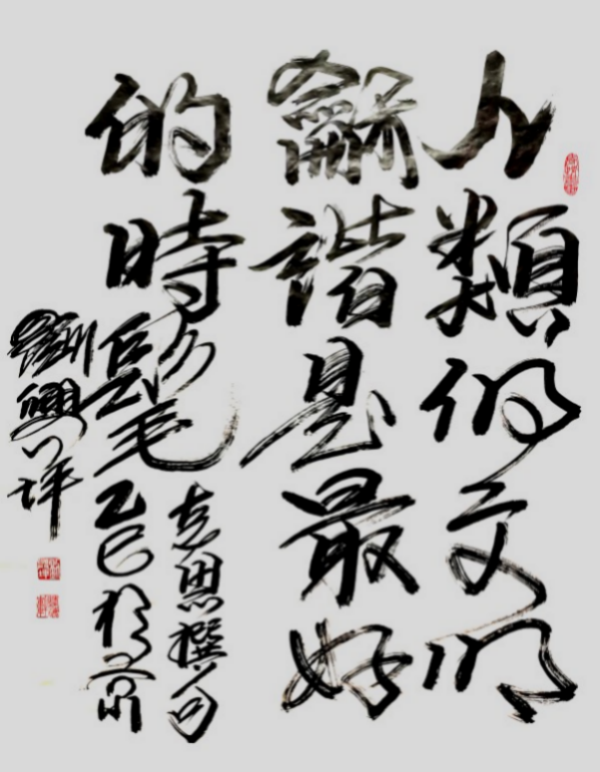 人類的文明
龢諧是最好
的時髦
志思撰句
乙巳於京
劉興祥